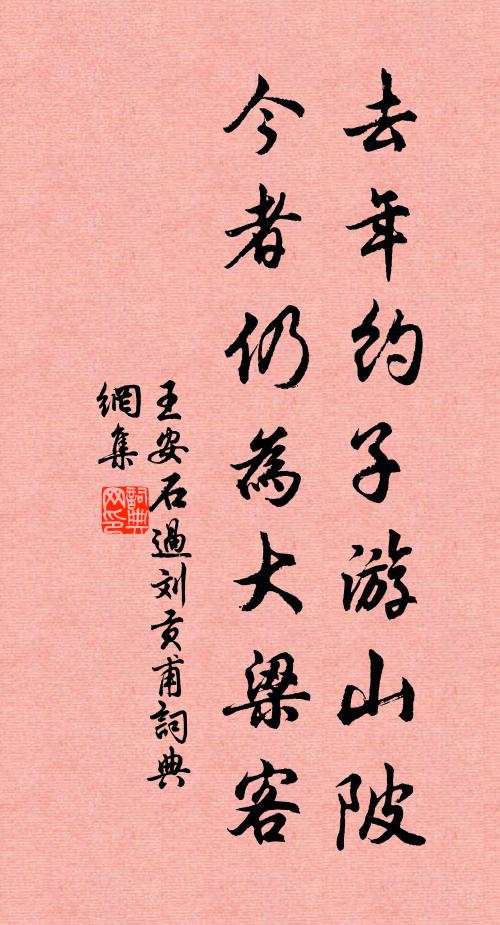 去年約子游山陂
今者仍為大梁客
王安石過刘贡甫詞典
網集
詞典网印